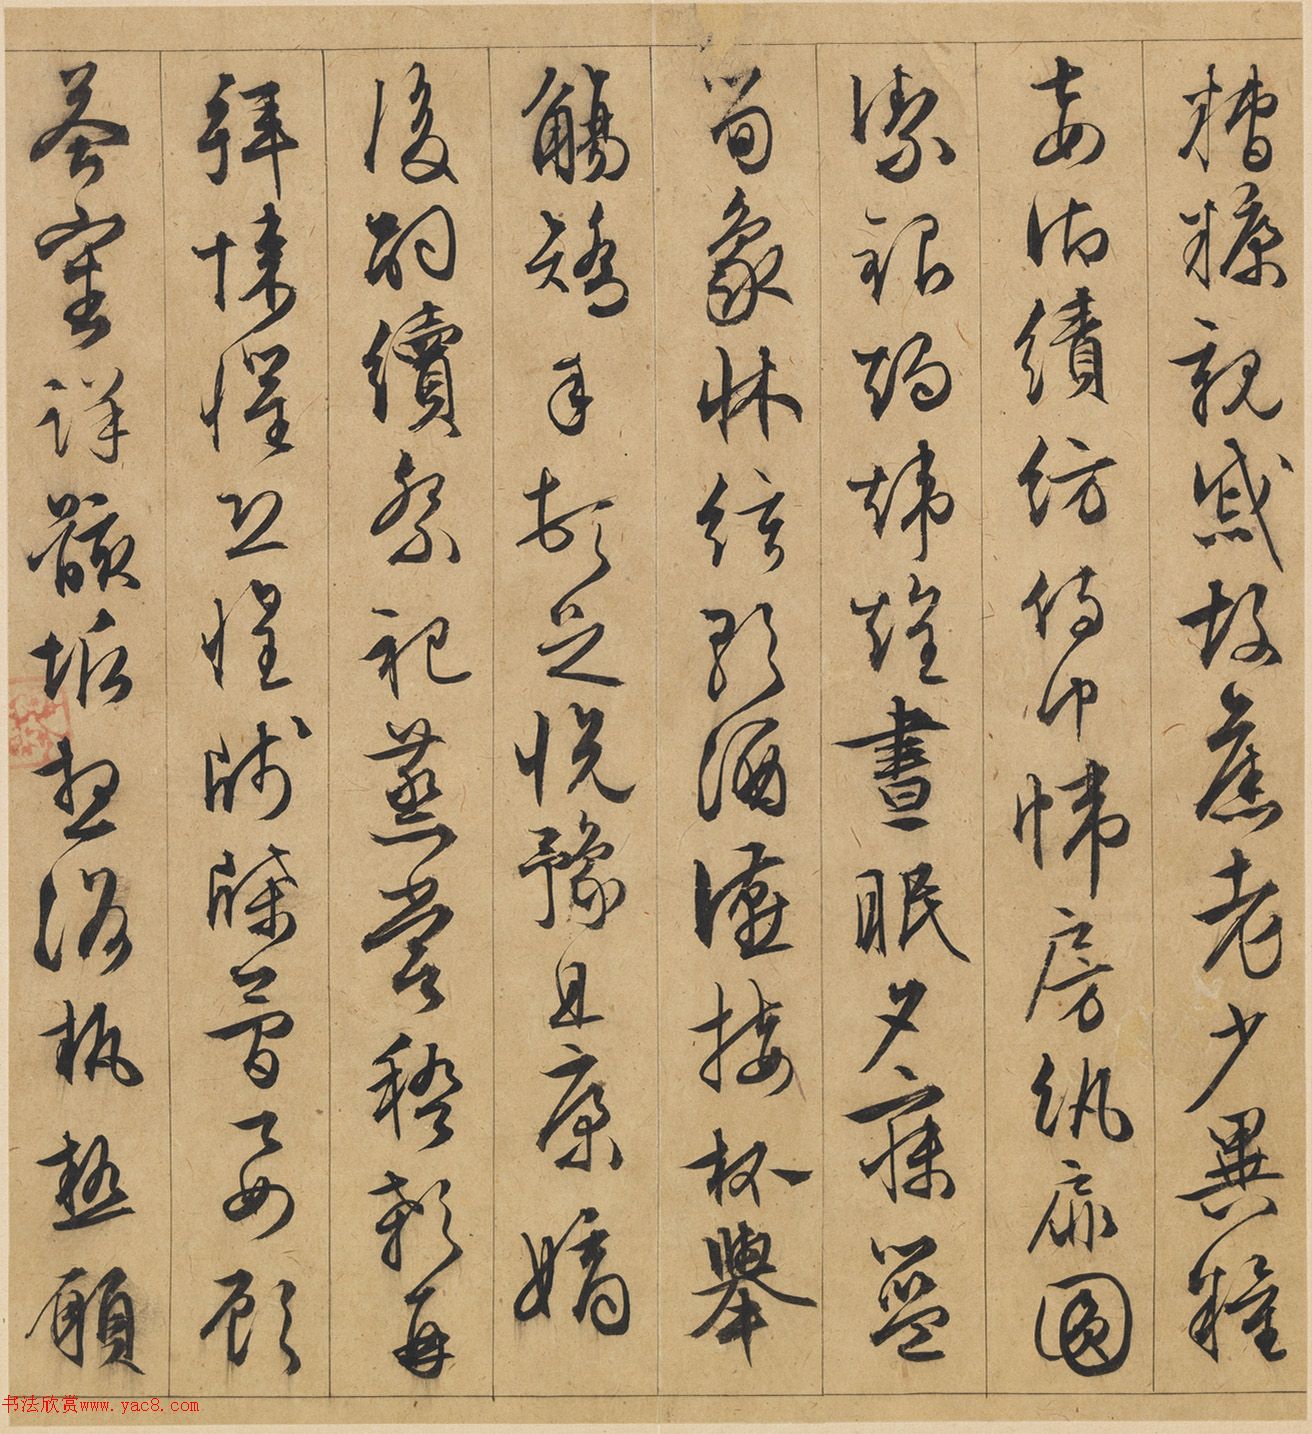 糟糠親戚故舊老少異糧
妾御績紡侍巾幃房紈扇圓
潔銀燭煒煌晝眠夕寐藍
筍象牀絃歌酒讌接杯舉
觴矯手頓足悅豫且康嫡
後嗣續祭祀蒸嘗稽顙再
拜悚懼恐惶牋牒簡要顧
答審詳骸垢想浴執熱願
书法欣赏www.yac8.com